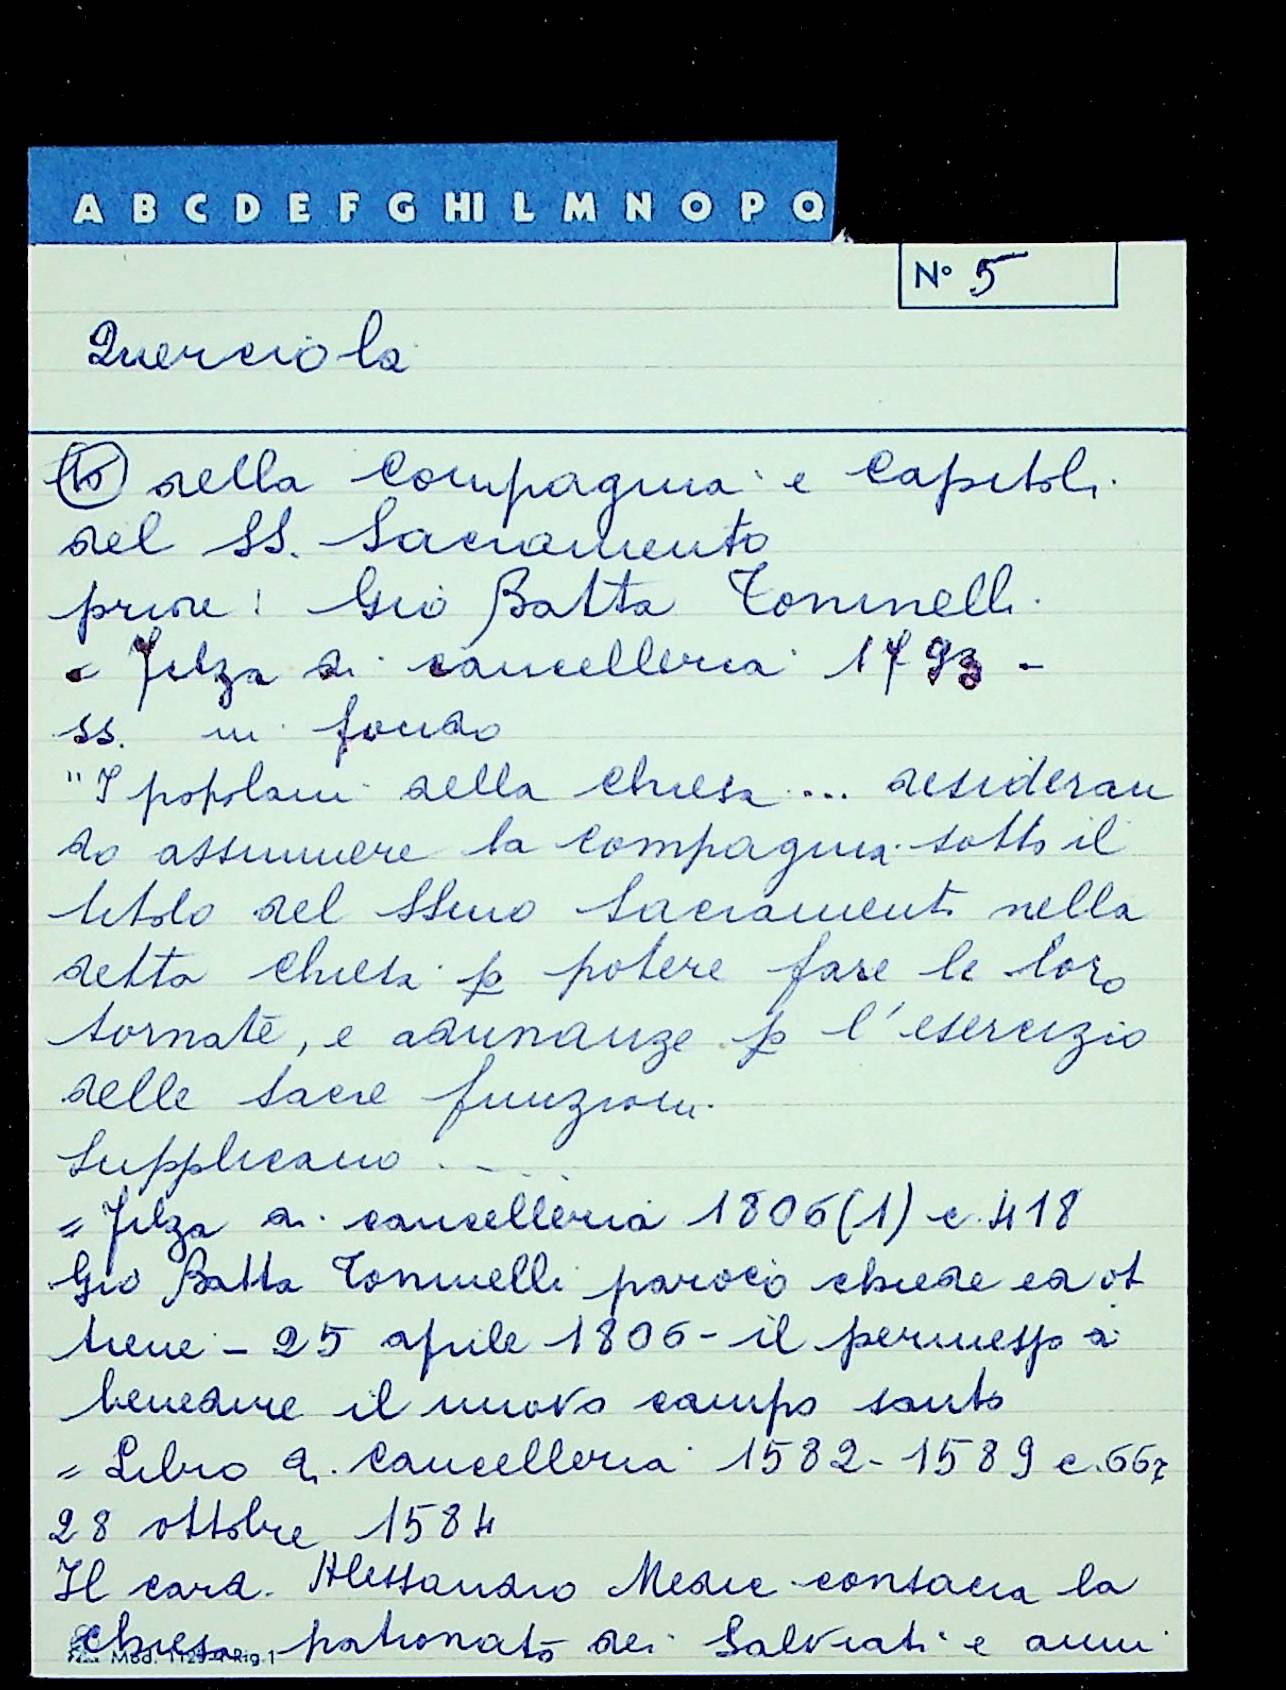 A B C D E F G HI L M N O P Q
N° 5
Querciola
to della Compagnia e Capitoli
del SS. Sacramento
priore: Gio Batta Toninelli
= Filza di cancelleria 1793 -
ss. in fondo
"I popolani della Chiesa ... desideran
do assumere la Compagnia sotto il
titolo del SSmo Sacramento nella
detta Chiesa p potere fare le loro
tornate, e adunanze p l'esercizio
delle sacre funzioni
Supplicano ....
= Filza di cancelleria 1806(1) c. 418
Gio Batta Toninelli paroco chiede ed ot
tiene - 25 aprile 1806 - il permesso di
benedire il nuovo campo santo
= Libro di Cancelleria 1582-1589 c.66r
28 ottobre 1584
Il card. Alessandro Medic consacra la
chiesa patronato dei Salviati e
Mod. Rig.1